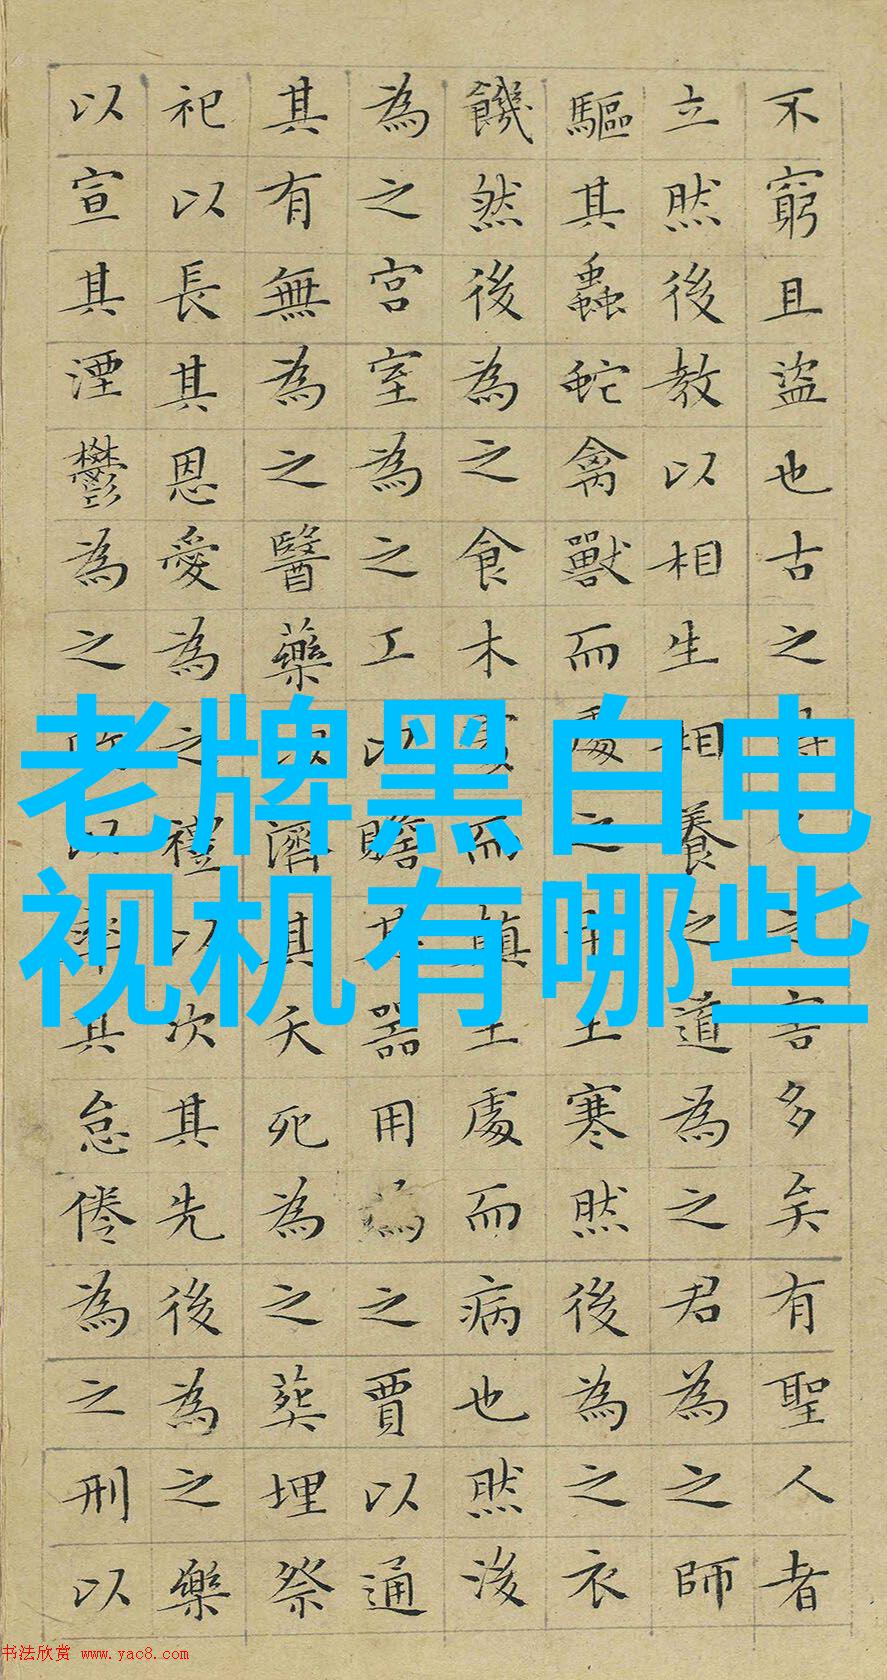 不窮且盜也古之之害多矣有聖人者
立然後教以相生相養之道為之君為之師
驅其蟲蛇禽獸而處之土寒然後為之衣
饑然後為之食木處而顛土處而病也然後
為之宮室為之工以贍其器用為之賈以通
其有無為之醫藥以濟其夭死為之葬埋祭
祀以長其恩愛為之禮以次其先後為之樂
以宣其湮鬱為之以率其怠倦為之刑以
老牌黑白电
视机有哪些
书法欣赏 www.yac8.com